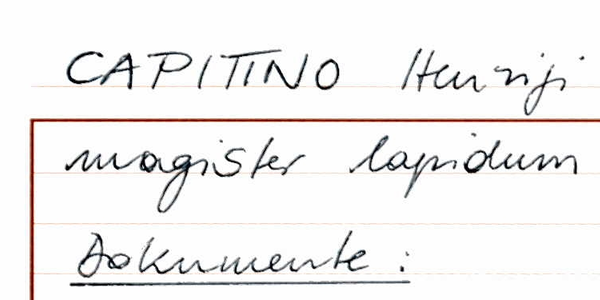 CAPITINO Henrigi
magister lapidum
Dokumente: